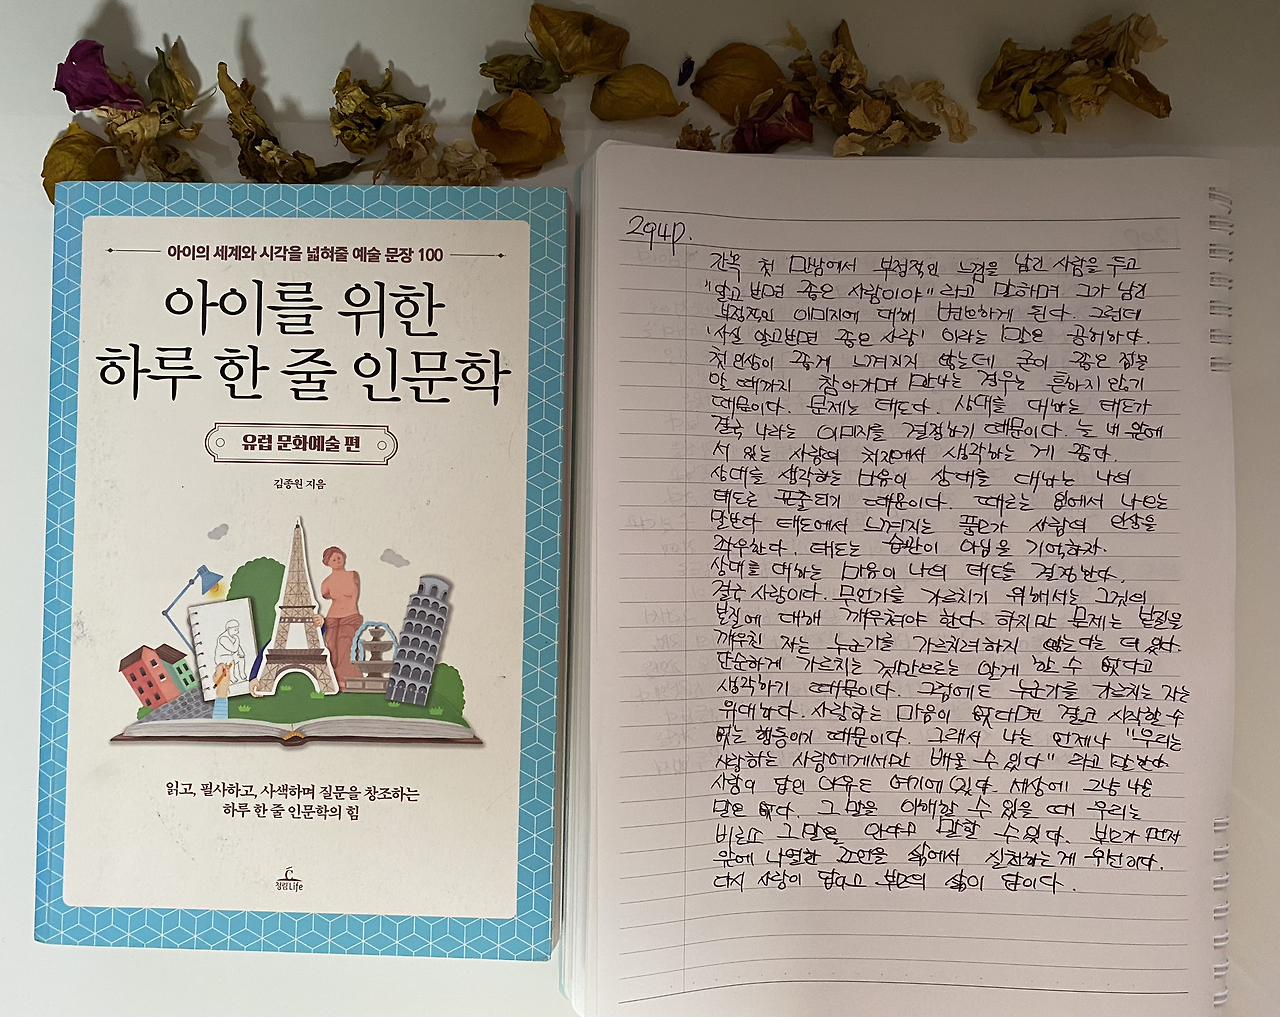 아이의 세계와 시각을 넓혀줄 예술 문장 100
아이를 위한
하루 한 줄 인문학
유럽 문화예술 편
김종원 지음
읽고, 필사하고, 사색하며 질문을 창조하는
하루 한 줄 인문학의 힘
청림Life
294p.
간혹 첫 만남에서 부정적인 느낌을 남긴 사람을 두고
"알고 보면 좋은 사람이야" 라고 말하며 그가 남긴
부정적인 이미지에 대해 변호하게 된다. 그런데
'사실 알고보면 좋은 사람' 이라는 말은 공허하다.
첫인상이 좋게 느껴지지 않는데 굳이 좋은 점을
알 때까지 참아가며 만나는 경우는 흔하지 않기
때문이다. 문제는 태도다. 상대를 대하는 태도가
결국 나라는 이미지를 결정하기 때문이다. 늘 내 앞에
서 있는 사람의 처지에서 생각하는 게 좋다.
상대를 생각하는 마음이 상대를 대하는 나의
태도로 표출되기 때문이다. 때로는 입에서 나오는
말보다 태도에서 느껴지는 품위가 사람의 인상을
좌우한다. 태도는 습관이 아님을 기억하자.
상대를 대하는 마음이 나의 태도를 결정한다.
결국 사랑이다. 무언가를 가르치기 위해서는 그것의
본질에 대해 깨우쳐야 한다. 하지만 문제는 본질을
깨우친 자는 누군가를 가르치려하지 않는다는 데 있다.
단순하게 가르치는 것만으로는 알게 할 수 없다고
생각하기 때문이다. 그럼에도 누군가를 가르치는 자는
위대하다. 사랑하는 마음이 없다면 절코 시작할 수
없는 행동이기 때문이다. 그래서 나는 언제나 "우리는
사랑하는 사람에게서만 배울 수 있다" 라고 말한다.
사랑이 답인 이유도 여기에 있다. 세상에 그냥 나온
말은 없다. 그 말을 이해할 수 있을 때 우리는
비로소 그 말을 안다고 말할 수 있다. 부모가 먼저
앞에 나열한 조언을 삶에서 실천하는 게 우선이다.
다시 사랑이 답이고 부모의 삶이 답이다.